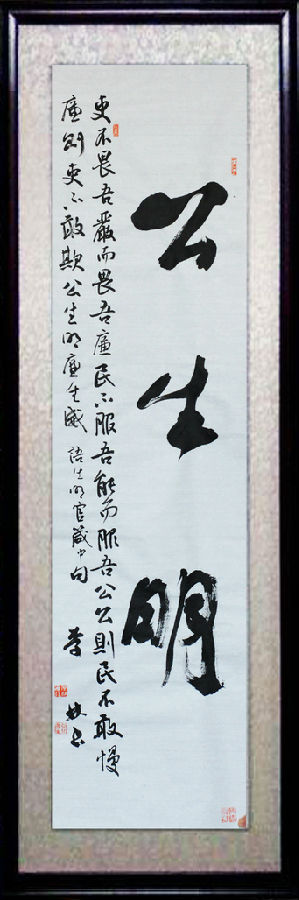 公生明
吏不畏吾嚴而畏吾廉民不服吾能而服吾公公則民不敢慢
廉則吏不敢欺公生明廉生威 語出明官箴中句